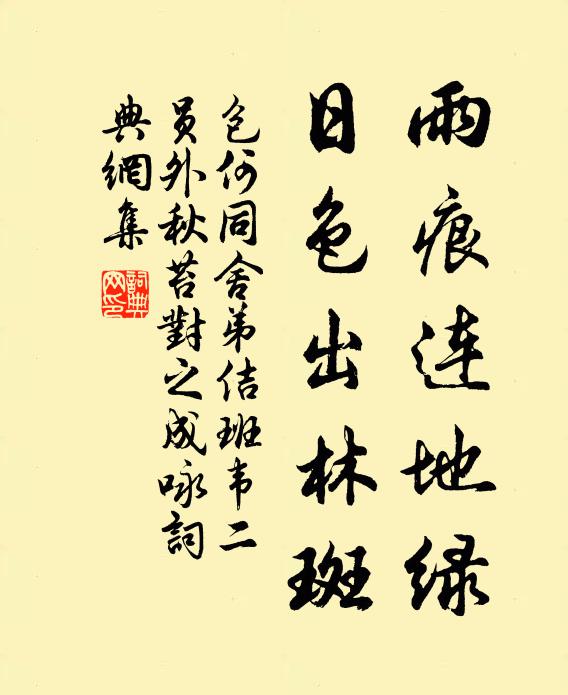 雨痕连地绿
日色出林斑
包何同舍弟佶班韦二
员外秋苔對之成咏詞
典網集
詞典网印